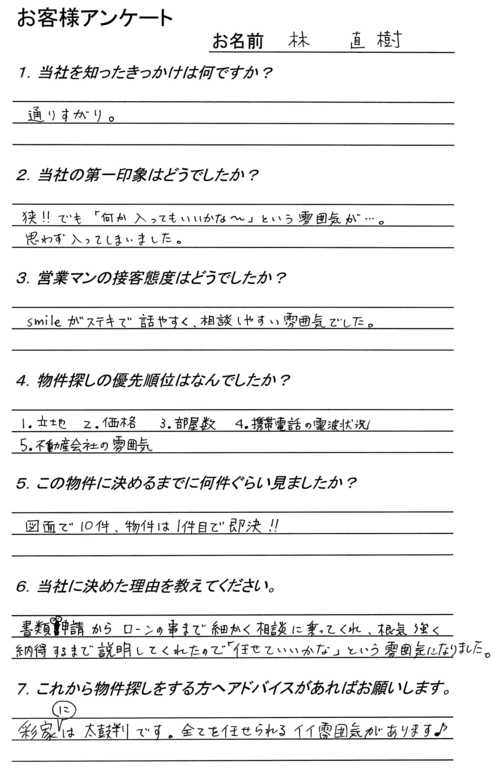 お客様アンケート
お名前 林 直樹
1. 当社を知ったきっかけは何ですか？
通りすがり。
2. 当社の第一印象はどうでしたか？
狭!! でも「何か入ってもいいかな～」という雰囲気が…。
思わず入ってしまいました。
3. 営業マンの接客態度はどうでしたか？
smileがステキで話やすく、相談しやすい雰囲気でした。
4. 物件探しの優先順位はなんでしたか？
1.立地 2.価格 3.部屋数 4.携帯電話の電波状況
5.不動産会社の雰囲気
5. この物件に決めるまでに何件ぐらい見ましたか？
図面で10件、物件は1件目で即決!!
6. 当社に決めた理由を教えてください。
書類申請からローンの事まで細かく相談に乗ってくれ、根気強く
納得するまで説明してくれたので「任せていいかな」という雰囲気になりました。
7. これから物件探しをする方へアドバイスがあればお願いします。
彩家には太鼓判です。全てを任せられるイイ雰囲気があります♪